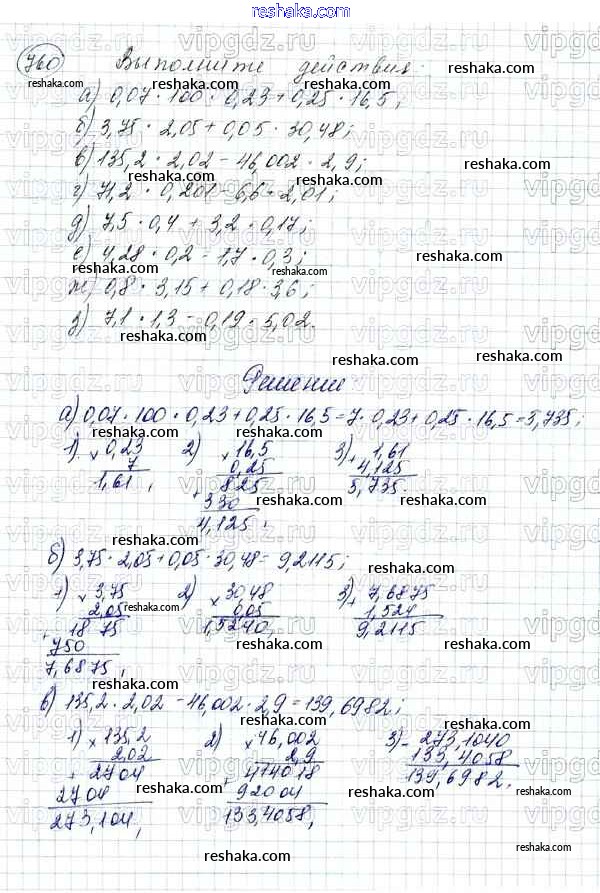 reshaka.com
760 Выполните действия:
а) 0,07 · 100 · 0,23 + 0,25 · 16,5;
б) 3,75 · 2,05 + 0,05 · 30,48;
в) 135,2 · 2,02 - 46,002 · 2,9;
г) 71,2 · 0,201 - 6,6 · 2,01;
д) 7,5 · 0,4 + 3,2 · 0,17;
е) 4,28 · 0,2 - 1,7 · 0,3;
ж) 0,8 · 3,15 + 0,18 · 3,6;
з) 7,1 · 1,3 - 0,19 · 5,02.
Решение
а) 0,07 · 100 · 0,23 + 0,25 · 16,5 = 7 · 0,23 + 0,25 · 16,5 = 5,735;
1) × 0,23 2) × 16,5 3) + 1,61
7 0,25 4,125
1,61, + 825 5,735.
330
4,125,
б) 3,75 · 2,05 + 0,05 · 30,48 = 9,2115;
1) × 3,75 2) × 30,48 3) + 7,6875
2,05 0,05 1,524
+ 1875 1,5240, 9,2115.
750
7,6875,
в) 135,2 · 2,02 - 46,002 · 2,9 = 139,6982;
1) × 135,2 2) × 46,002 3) - 273,1040
2,02 2,9 133,4058
+ 2704 + 414018 139,6982.
2704 92004
273,104, 133,4058,